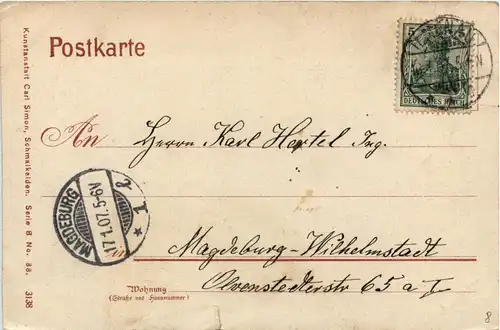 Postkarte
DEUTSCHES REICH
An
Herrn Karl Hartel Ing.
MAGDEBURG
17.1.07.5-6N
* 1 g.
in
Magdeburg-Wilhelmstadt
Olvenstedterstr 65 a I
Wohnung
(Straße und Hausnummer)
Kunstanstalt Carl Simon, Schmalkalden. Serie B No. 88.
3138
8